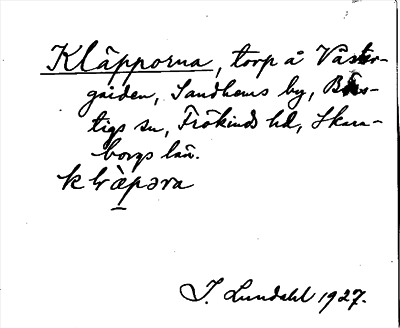 Kläpporna, torp å Väster-
gården, Sandhems by, Börs-
tigs sn, Frökinds hd, Skara-
borgs län.
klæ̀pəra
I. Lundahl 1927.